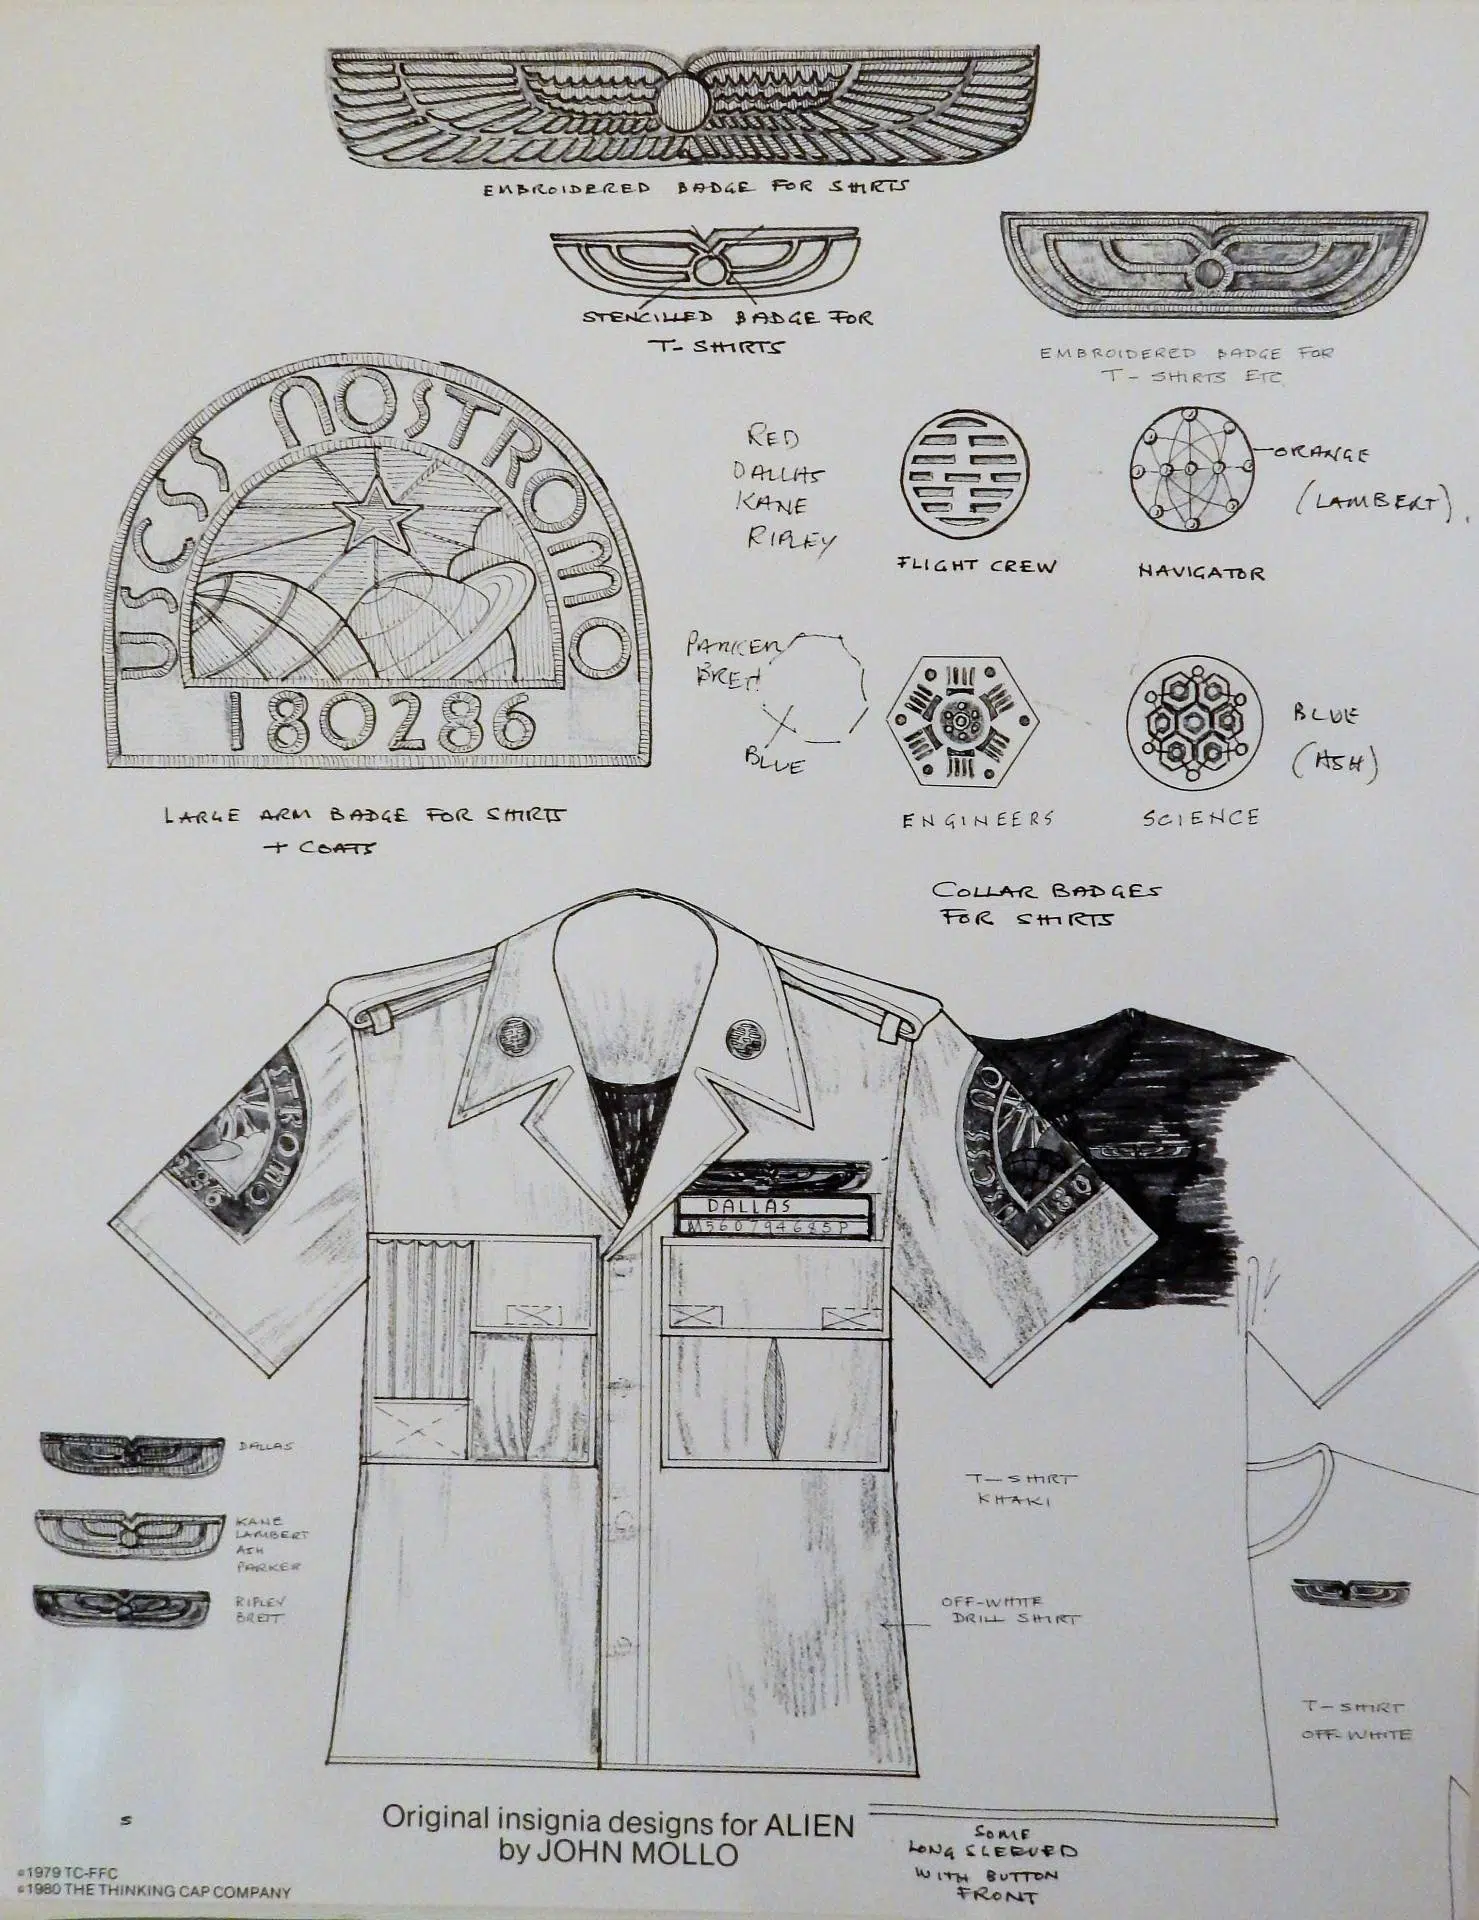 EMBROIDERED BADGE FOR SHIRTS
STENCILLED BADGE FOR
T-SHIRTS
EMBROIDERED BADGE FOR
T-SHIRTS ETC
USCSS NOSTROMO
180286
LARGE ARM BADGE FOR SHIRTS
+ COATS
RED
DALLAS
KANE
RIPLEY
FLIGHT CREW
ORANGE
(LAMBERT).
NAVIGATOR
PARKER
BRETT
BLUE
ENGINEERS
BLUE
(ASH)
SCIENCE
COLLAR BADGES
FOR SHIRTS
STROMO
286
USCSS
180
DALLAS
M5607944685P
DALLAS
KANE
LAMBERT
ASH
PARKER
RIPLEY
BRETT
T-SHIRT
KHAKI
OFF-WHITE
DRILL SHIRT
T-SHIRT
OFF-WHITE
SOME
LONG SLEEVED
WITH BUTTON
FRONT
Original insignia designs for ALIEN
by JOHN MOLLO
S
©1979 TC-FFC
©1980 THE THINKING CAP COMPANY